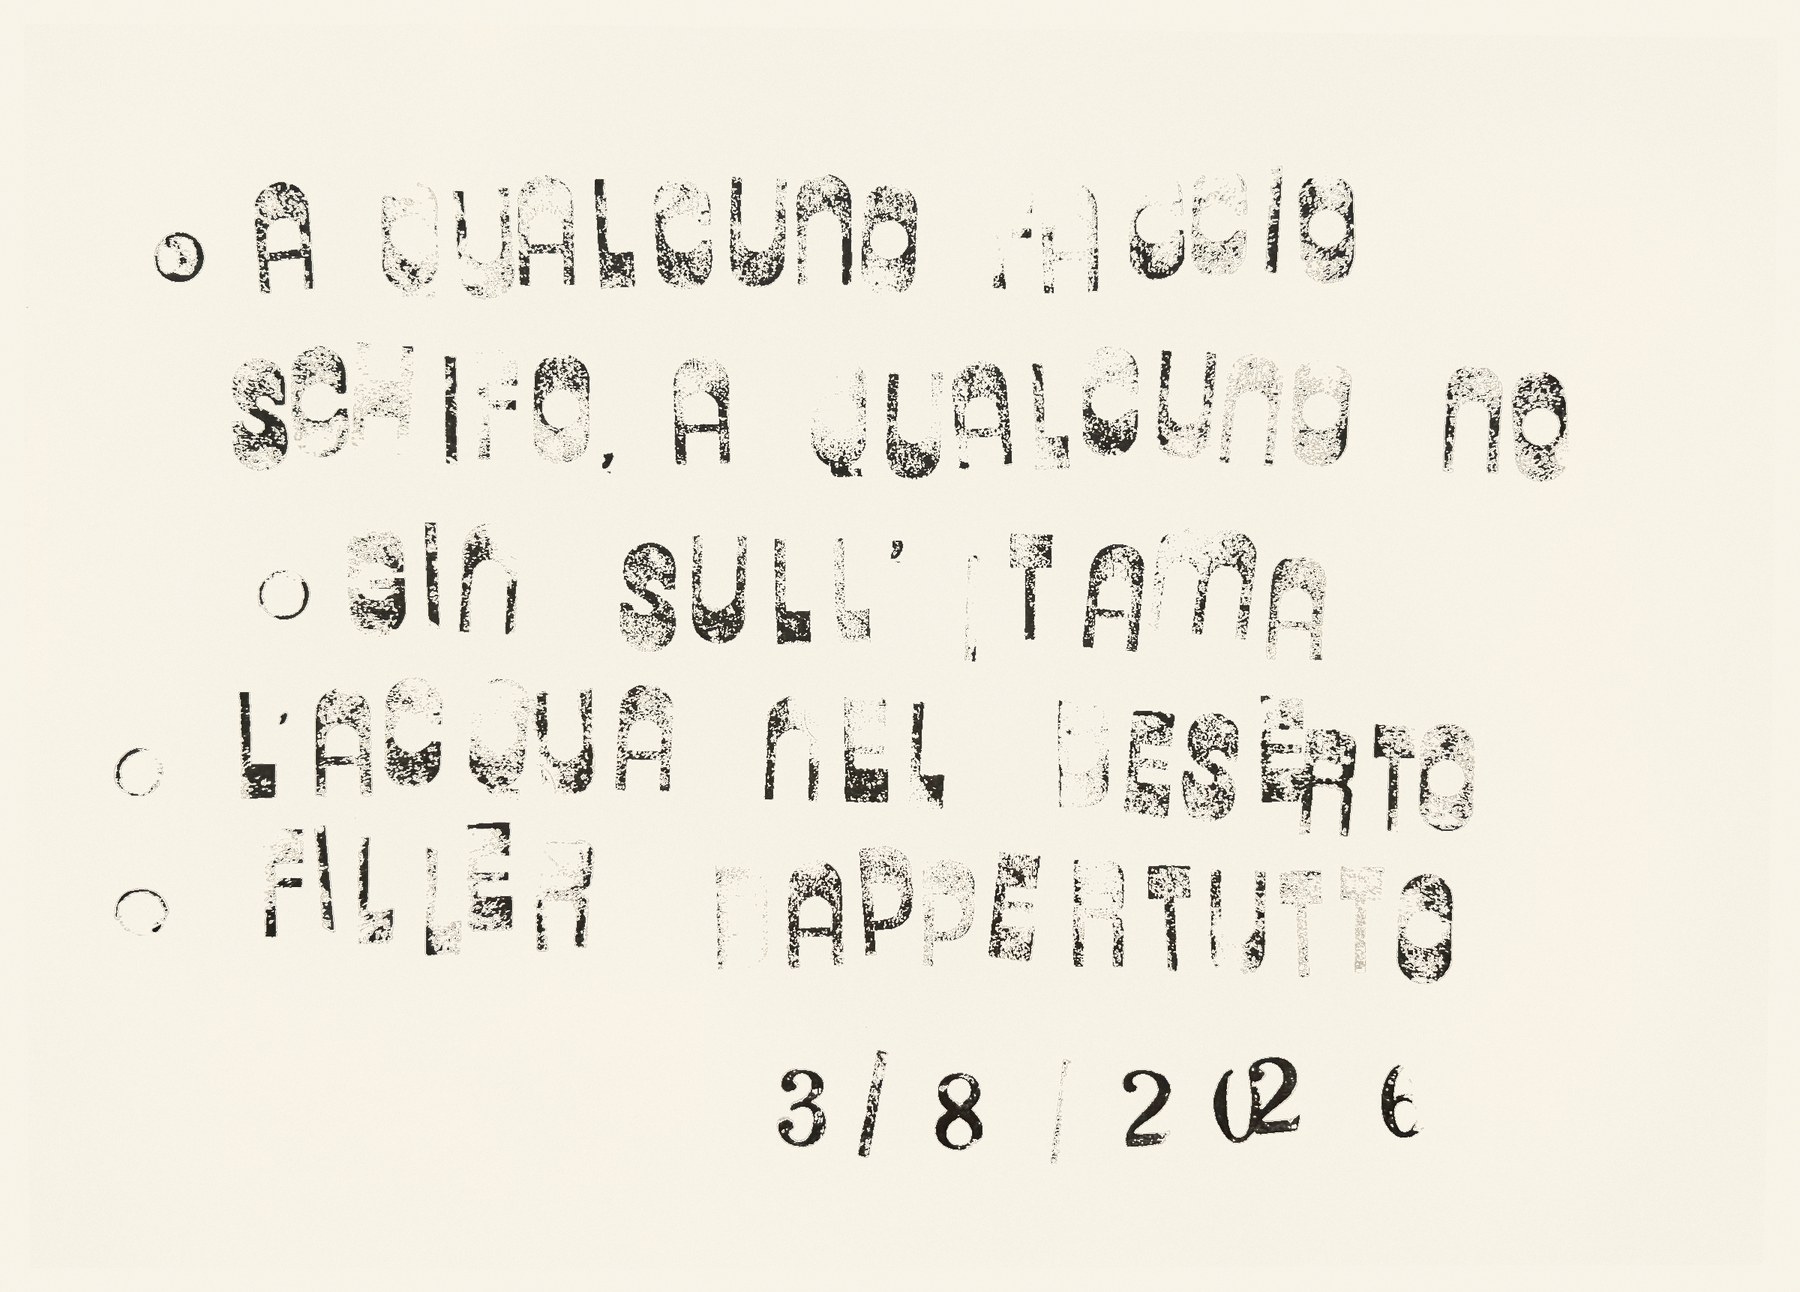 A QUALCUNO FACCIO
SCHIFO, A QUALCUNO NO
GIN SULL' TAMA
L'ACQUA NEL DESERTO
FILLER DAPPERTUTTO
3/8/2026